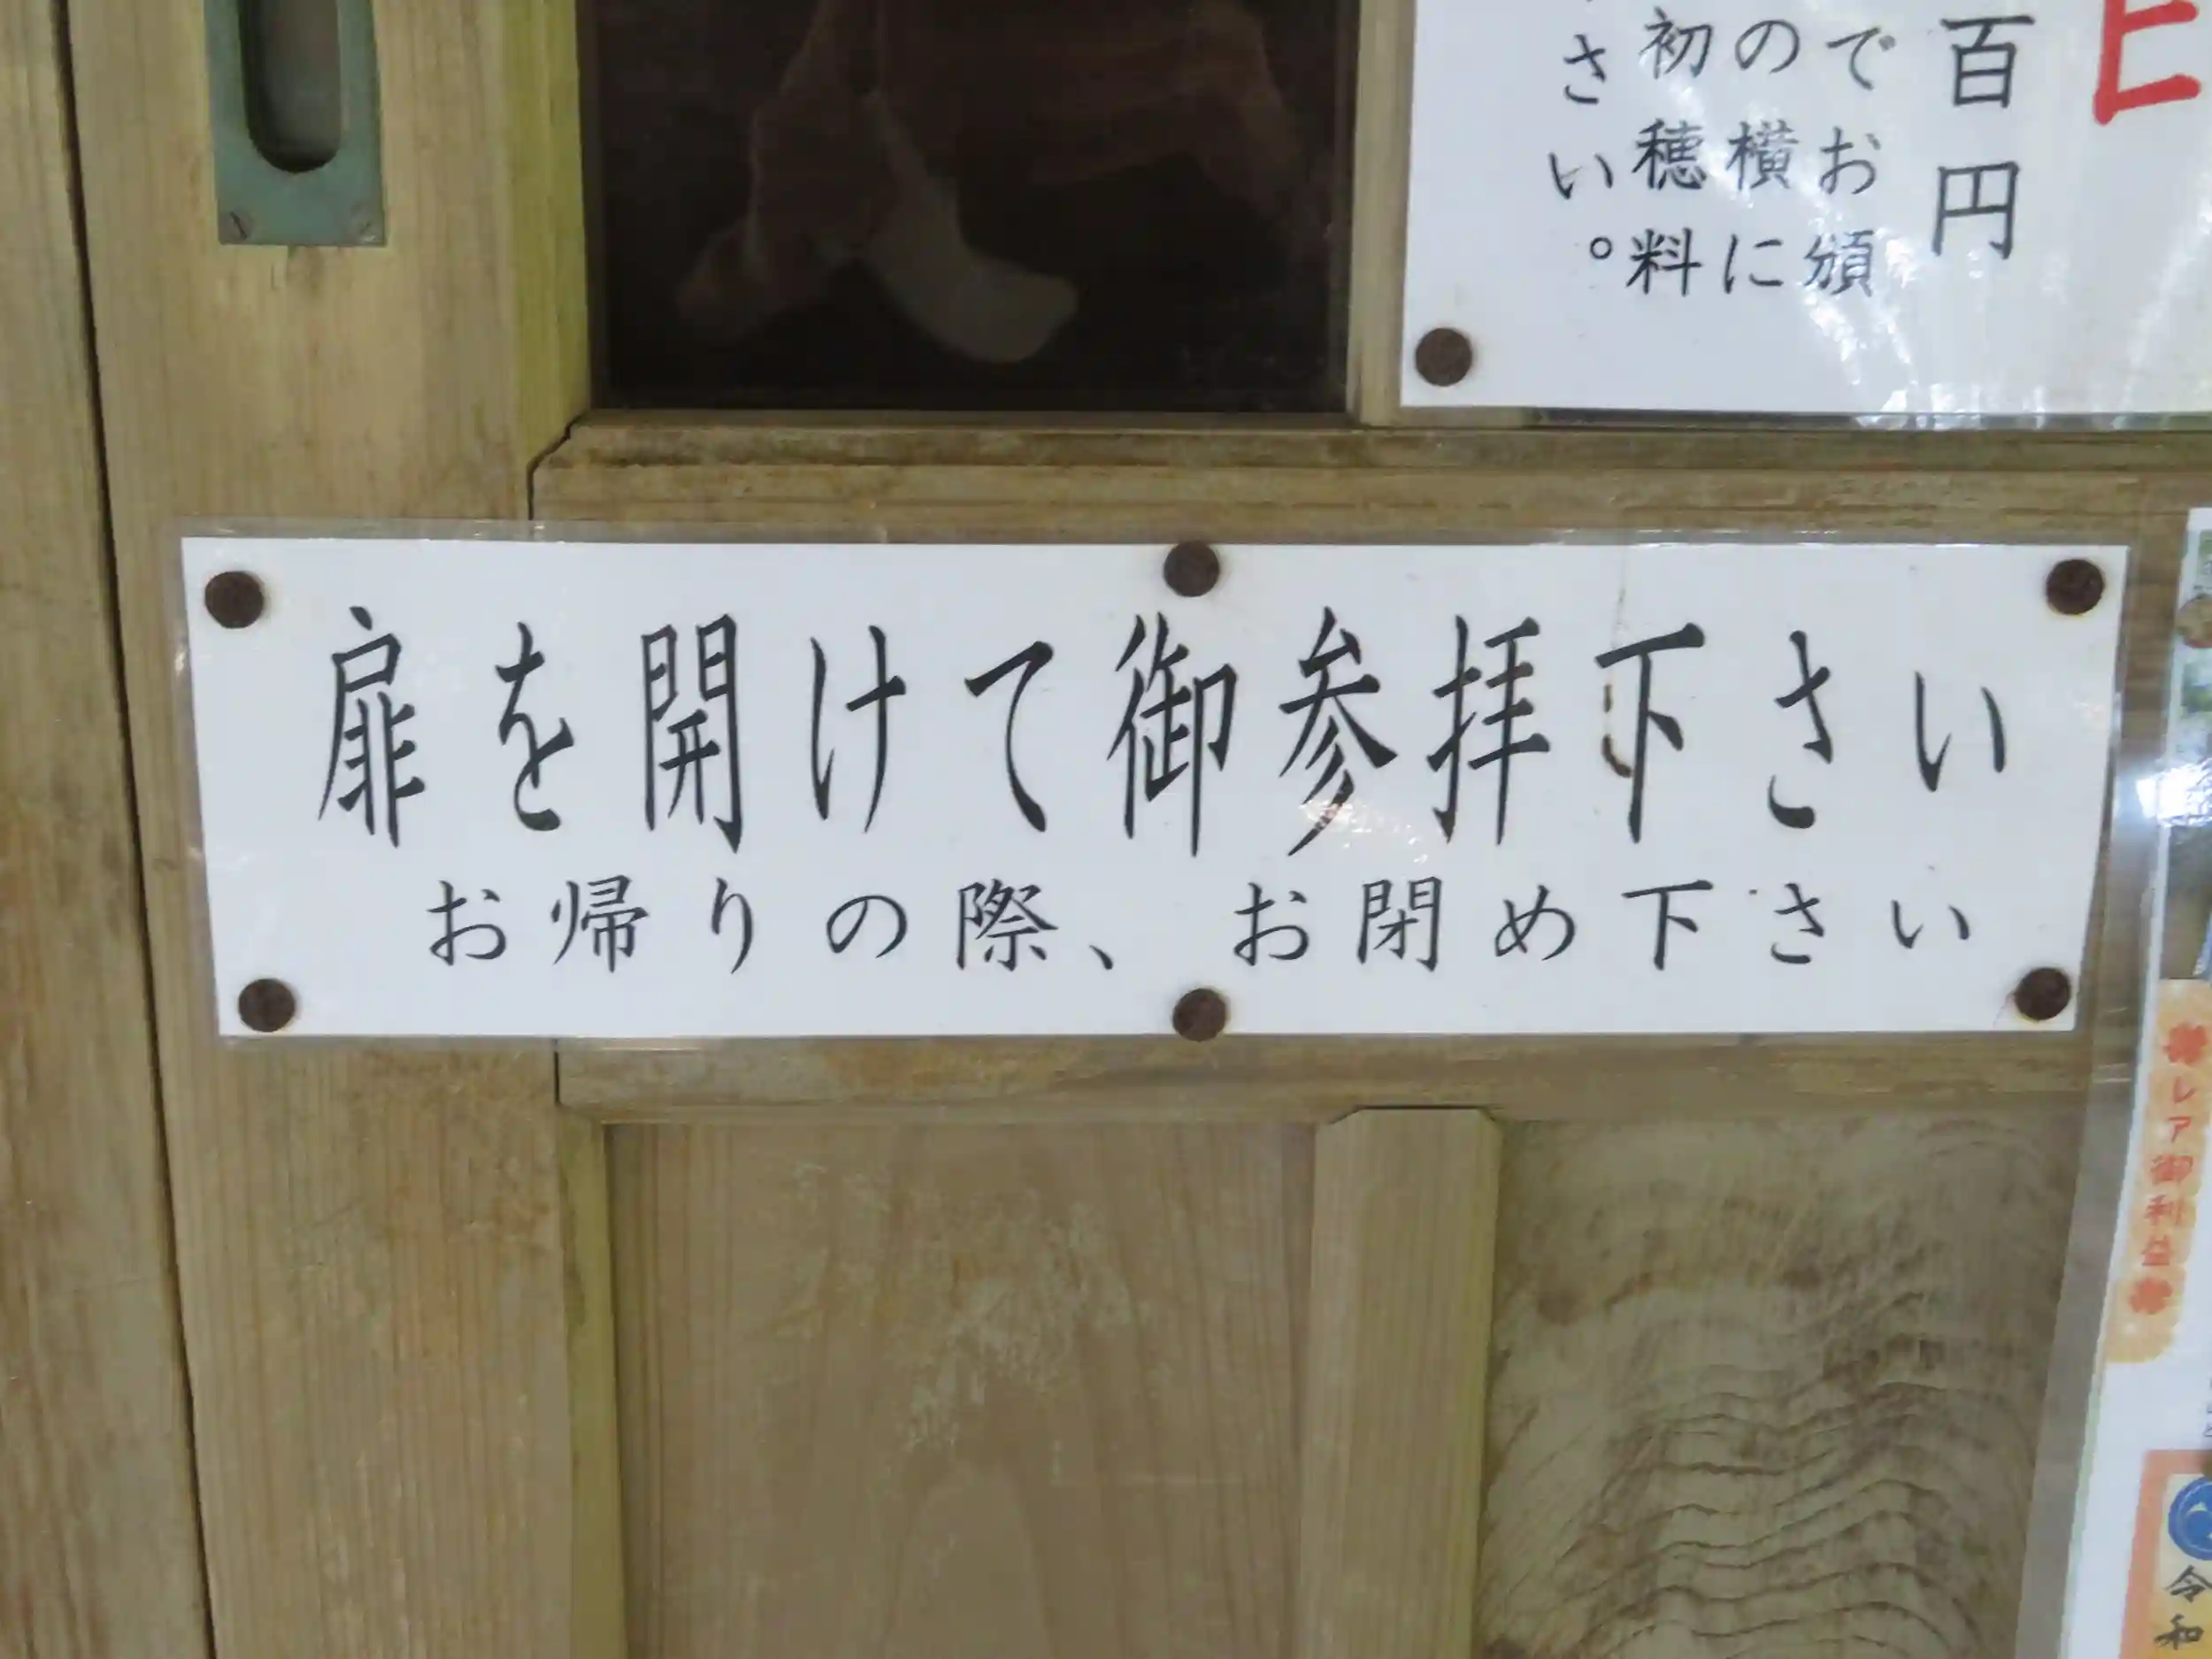 扉を開けて御参拝下さい
お帰りの際、お閉め下さい
百円
でお頒
の横に
初穂料
さい。
レア御利益
令和